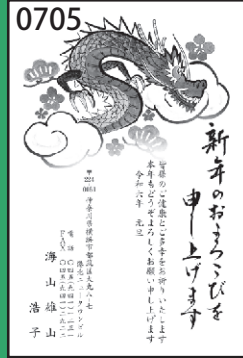 0705
新年のおよろこびを
申し上げます
皆様のご健康とご多幸をお祈りいたします
本年もどうぞよろしくお願い申し上げます
令和六年 元旦
〒
神奈川県横浜市都筑区大丸八-七
港北ニュータウンビル
電話
FAX
海山雄山
浩子